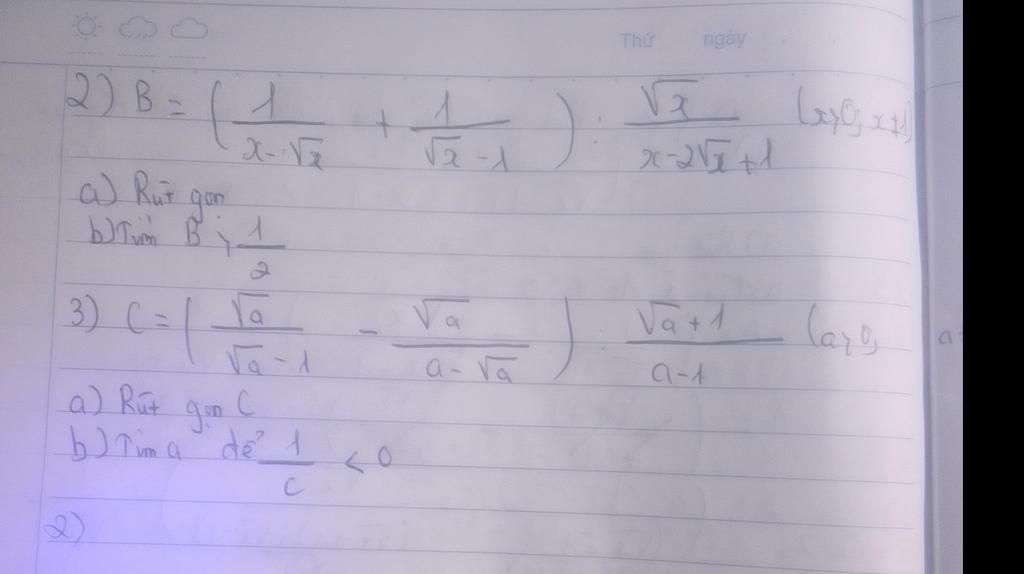 Thứ ngày
2) B = ( 1/(x-√x) + 1/(√x-1) ) : √x/(x-2√x+1) (x>0, x≠1)
a) Rút gọn
b) Tìm B > 1/2
3) C = ( √a/(√a-1) - √a/(a-√a) ) : (√a+1)/(a-1) (a>0, a
a) Rút gọn C
b) Tìm a để 1/C < 0
2)